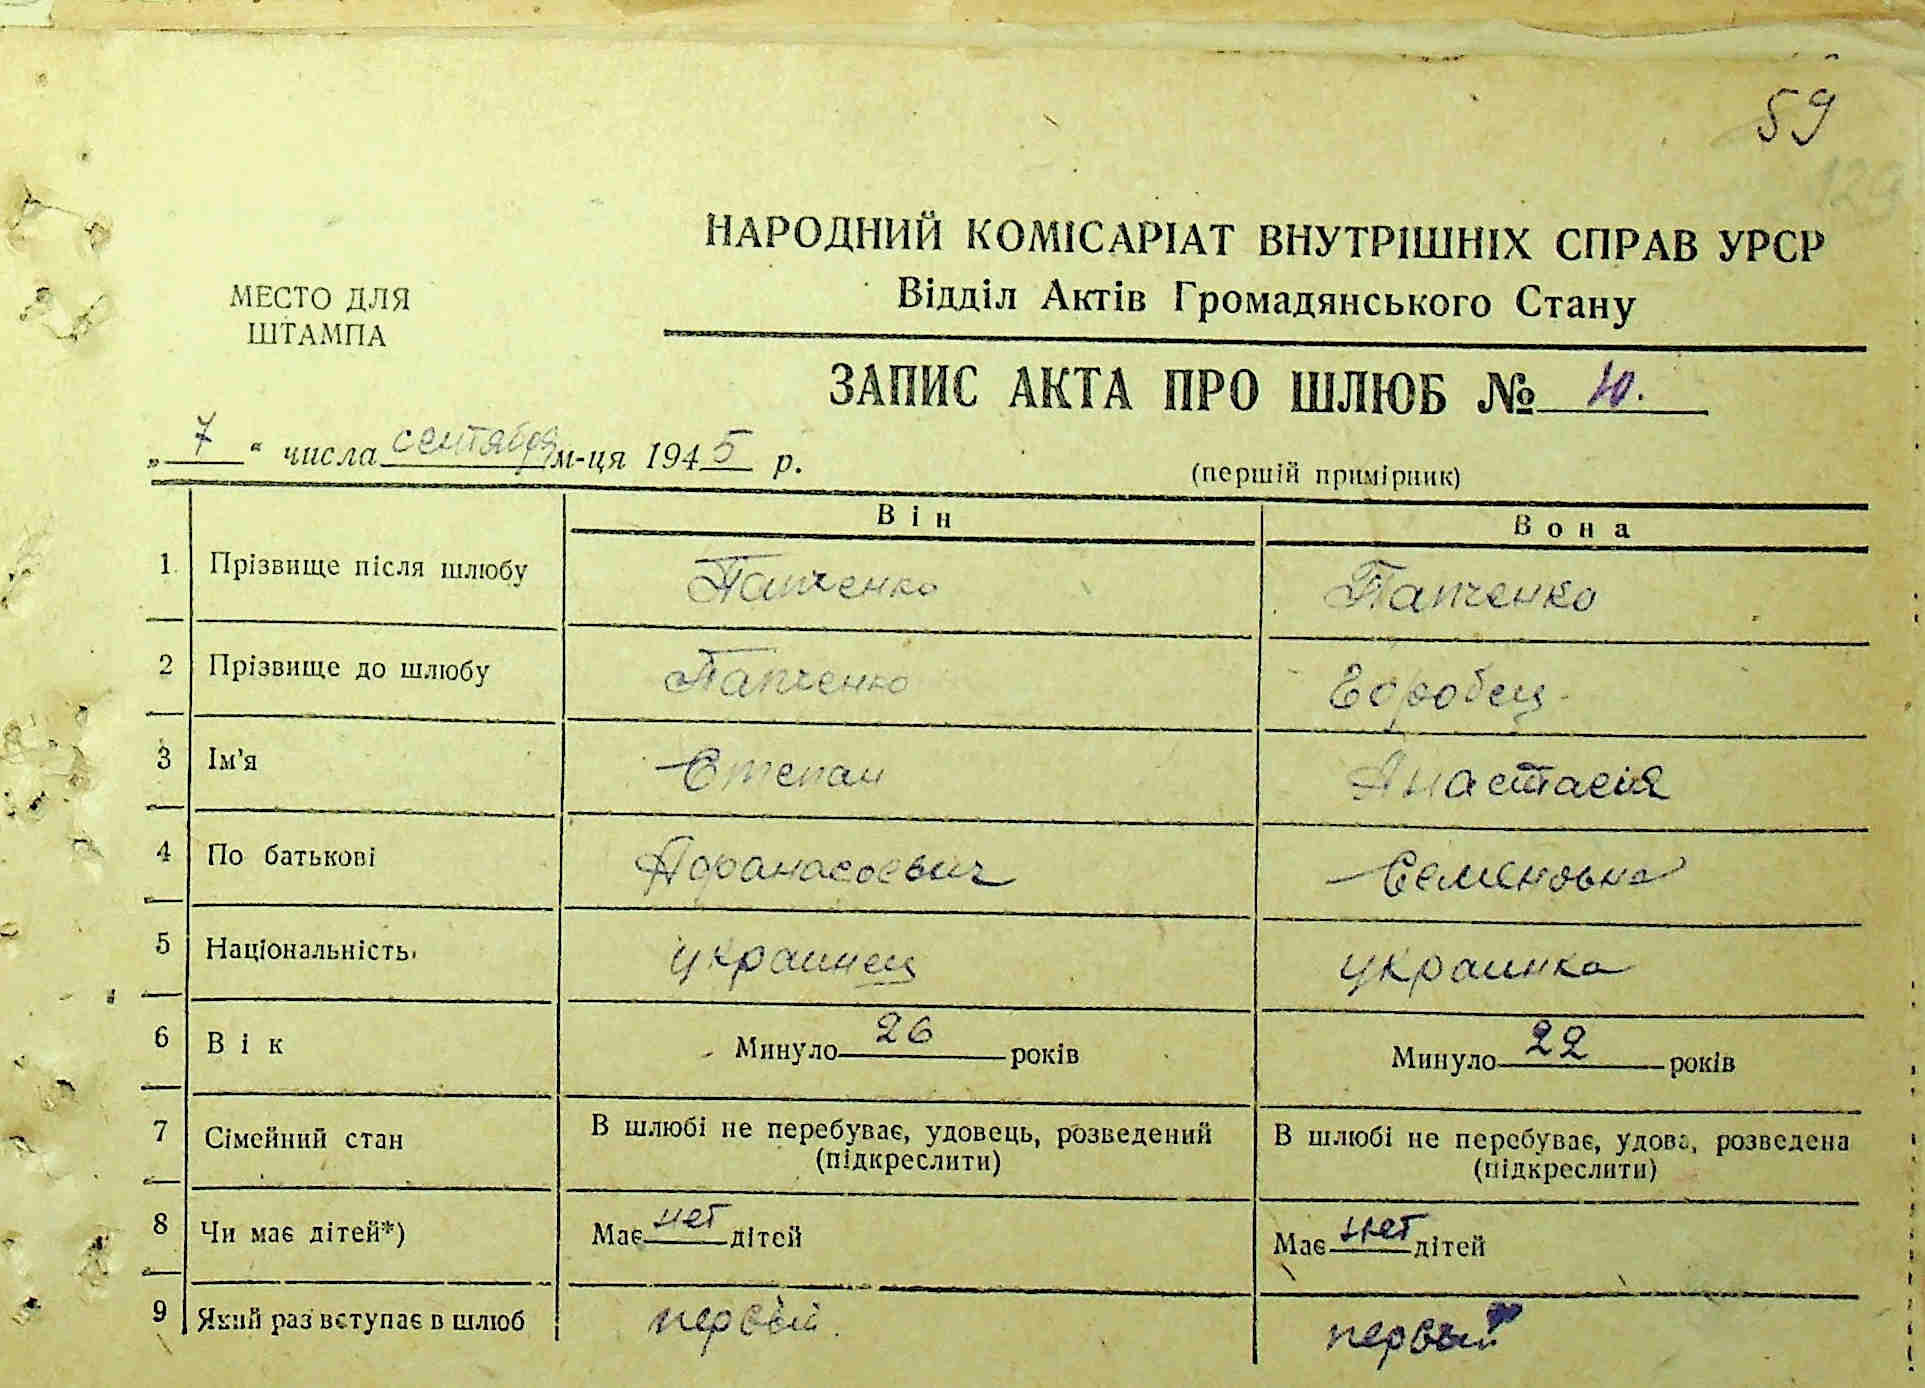 59
НАРОДНИЙ КОМІСАРІАТ ВНУТРІШНІХ СПРАВ УРСР
Відділ Актів Громадянського Стану
МЕСТО ДЛЯ
ШТАМПА
ЗАПИС АКТА ПРО ШЛЮБ № 10.
„ 7 “ числа сентября м-ця 1945 р.
(першій примірник)
Він Вона
1 Прізвище після шлюбу Папченко Папченко
2 Прізвище до шлюбу Папченко
3 Ім'я Степан Анастасія
4 По батькові Афанасоевич Семеновна
5 Національність украинец украинка
6 Вік Минуло 26 років Минуло 22 років
7 Сімейний стан В шлюбі не перебуває, удовець, розведений В шлюбі не перебуває, удова, розведена
(підкреслити) (підкреслити)
8 Чи має дітей*) Має нет дітей Має нет дітей
9 Який раз вступає в шлюб первый. первый